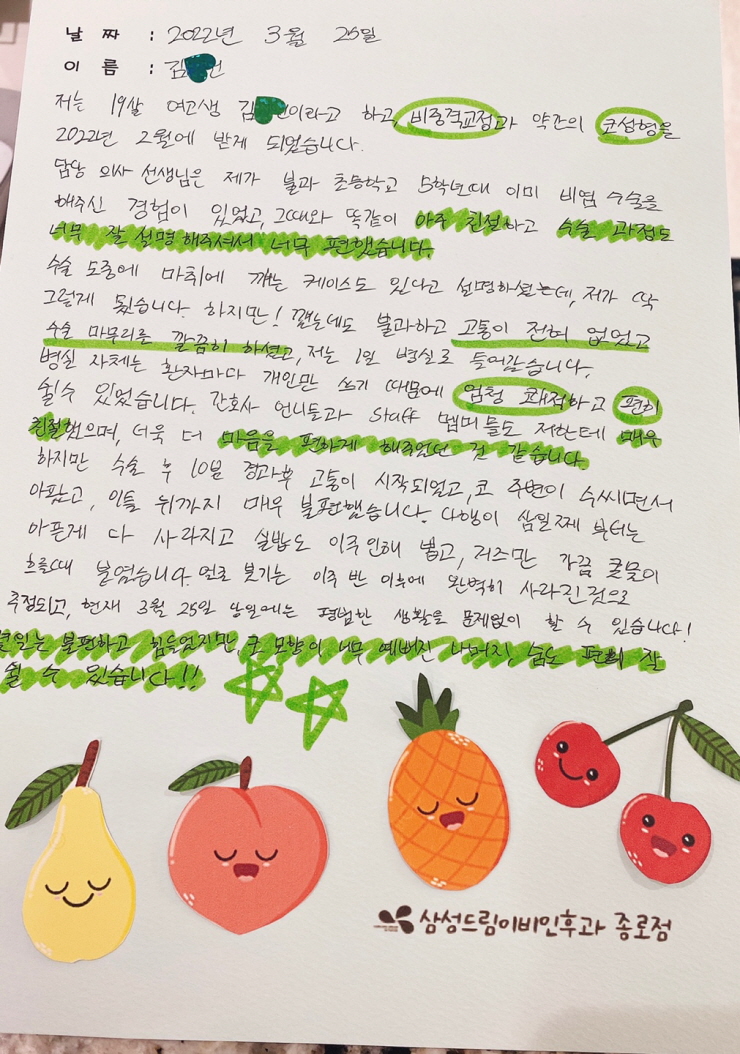 날 짜 : 2022년 3월 25일
이 름 : 김 언
저는 19살 여고생 김 언이라고 하고, 비중격교정과 약간의 코성형을
2022년 2월에 받게 되었습니다.
담당 의사 선생님은 제가 불과 초등학교 5학년때 이미 비염 수술을
해주신 경험이 있었고, 그때와 똑같이 아주 친절하고 수술 과정도
너무 잘 설명해주셔서 너무 편했습니다.
수술 도중에 마취에 깨는 케이스도 있다고 설명하셨는데, 제가 딱
그렇게 됐습니다. 하지만! 깼는데도 불과하고 고통이 전혀 없었고
수술 마무리를 깔끔히 하셨고, 저는 1일 병실로 들어갔습니다.
병실 자체는 환자마다 개인만 쓰기 때문에 엄청 쾌적하고 편히
쉴수 있었습니다. 간호사 언니들과 staff 멤버들도 저한테 매우
친절했으며, 더욱 더 마음을 편하게 해주었던 것 같습니다.
하지만 수술 후 10분 경과후 고통이 시작되었고, 코 주변이 수씨면서
아팠고, 이틀 뒤까지 매우 불편했습니다. 다행이 삼일째 부터는
아픈게 다 사라지고 실밥도 이주인해 뽑고, 거즈만 가끔 콧물이
흐를때 붙였습니다. 얼로 붓기는 이주 반 이후에 완벽히 사라진것으로
추정되고, 현재 3월 25일 당일에는 평범한 생활을 문제없이 할 수 있습니다!
몇일은 불편하고 힘들었지만, 코 모양이 너무 예뻐진 나머지, 숨도 편히 잘
쉴 수 있습니다!!
삼성드림이비인후과 종로점